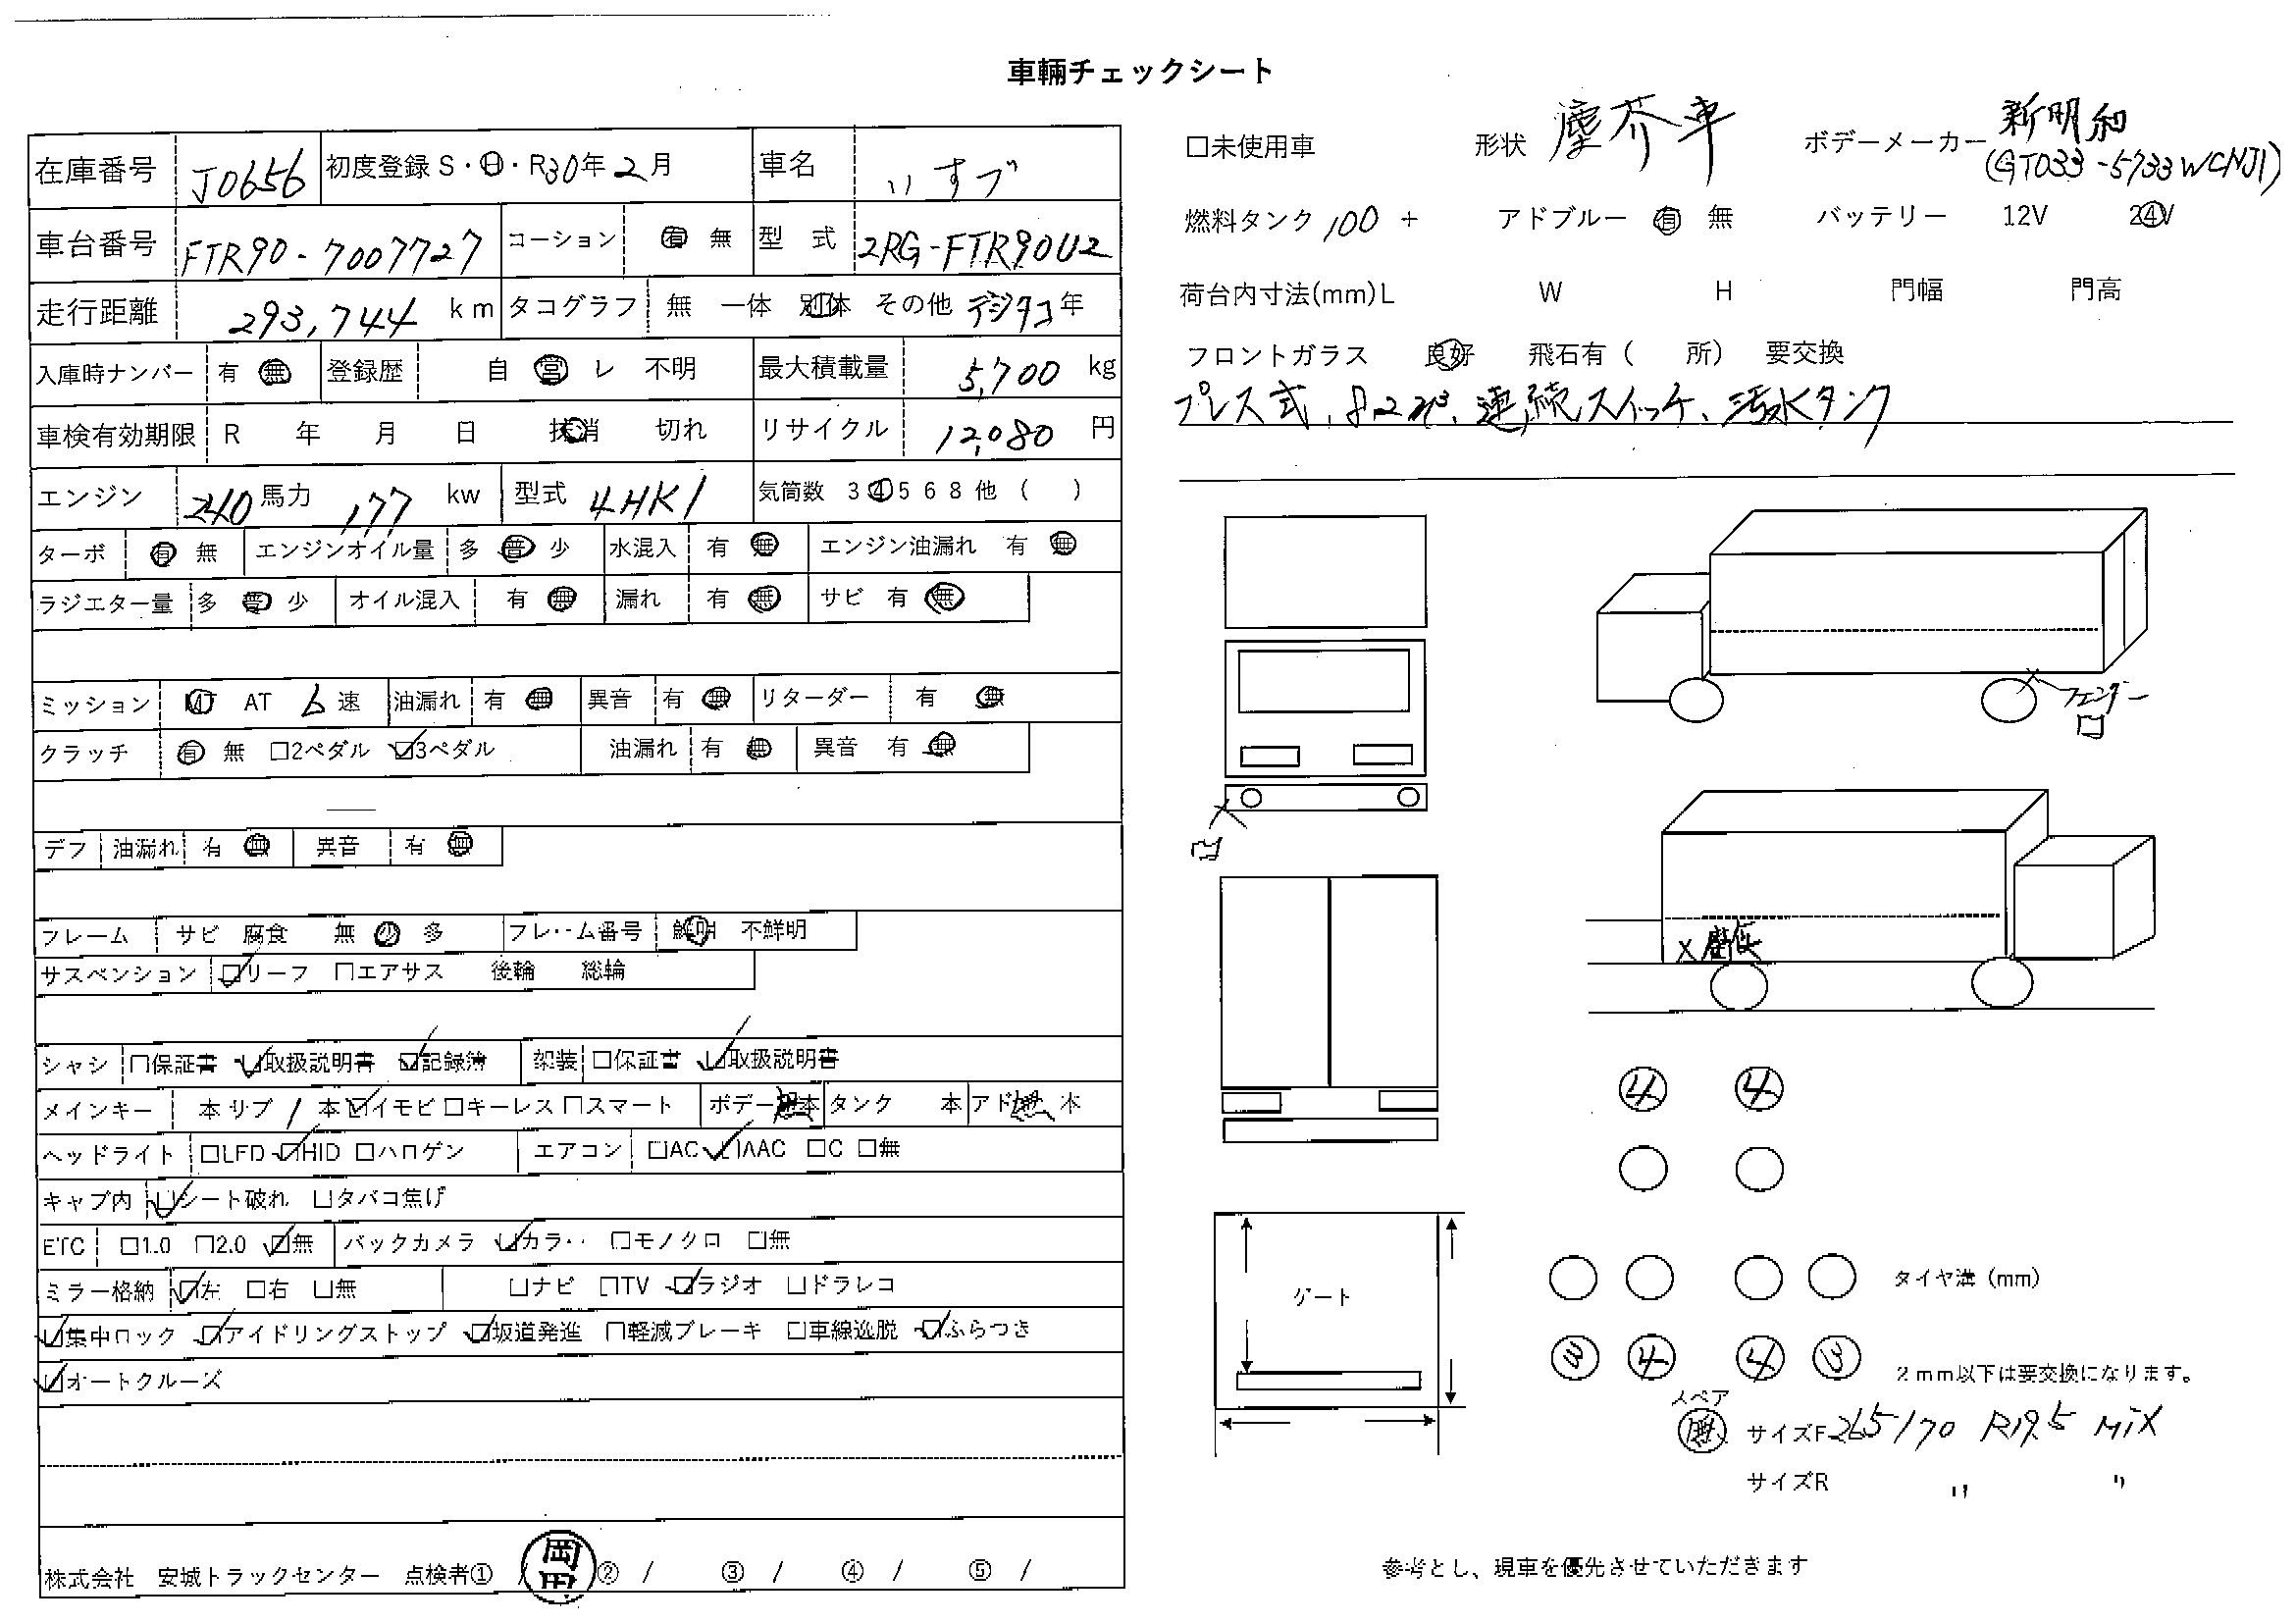 車輛チェックシート
在庫番号 J0656 初度登録 S・H・R30年2月 車名 いすゞ
車台番号 FTR90-7007727 コーション 有 無 型式 2RG-FTR90U2
走行距離 293,744 km タコグラフ 無 一体 別体 その他 デジタコ 年
入庫時ナンバー 有 無 登録歴 自 営 レ 不明 最大積載量 5,700 kg
車検有効期限 R 年 月 日 抹消 切れ リサイクル 12,080 円
エンジン 240 馬力 177 kw 型式 4HK1 気筒数 3 4 5 6 8 他 ( )
ターボ 有 無 エンジンオイル量 多 普 少 水混入 有 無 エンジン油漏れ 有 無
ラジエター量 多 普 少 オイル混入 有 無 漏れ 有 無 サビ 有 無
ミッション MT AT 6 速 油漏れ 有 無 異音 有 無 リターダー 有 無
クラッチ 有 無 □2ペダル ☑3ペダル 油漏れ 有 無 異音 有 無
デフ 油漏れ 有 無 異音 有 無
フレーム サビ 腐食 無 少 多 フレーム番号 鮮明 不鮮明
サスペンション ☑リーフ □エアサス 後輪 総輪
シャシ □保証書 ☑取扱説明書 ☑記録簿 架装 □保証書 ☑取扱説明書
メインキー 本 サブ 1 本 ☑イモビ □キーレス □スマート ボデー 本 タンク 本 アド 本
ヘッドライト □LED ☑HID □ハロゲン エアコン □AC ☑AAC □C □無
キャブ内 ☑シート破れ □タバコ焦げ
ETC □1.0 □2.0 ☑無 バックカメラ ☑カラー □モノクロ □無
ミラー格納 ☑左 □右 □無 □ナビ □TV ☑ラジオ □ドラレコ
☑集中ロック ☑アイドリングストップ ☑坂道発進 □軽減ブレーキ □車線逸脱 ☑ふらつき
☑オートクルーズ
株式会社 安城トラックセンター 点検者① / 岡田 ② / ③ / ④ / ⑤ /
□未使用車 形状 塵芥車 ボデーメーカー 新明和
(GT033-5733WCNJ1)
燃料タンク 100 + アドブルー 有 無 バッテリー 12V 24V
荷台内寸法(mm) L W H 門幅 門高
フロントガラス 良好 飛石有 ( 所) 要交換
プレス式、8.2㎥、連続スイッチ、汚水タンク
X フェンダー
凹
X
凹
X
4 4
ゲート
タイヤ溝 (mm)
3 4 4 3
2mm以下は要交換になります。
スペア
無 サイズF 265/70 R19.5 MIX
サイズR 〃 〃
参考とし、現車を優先させていただきます